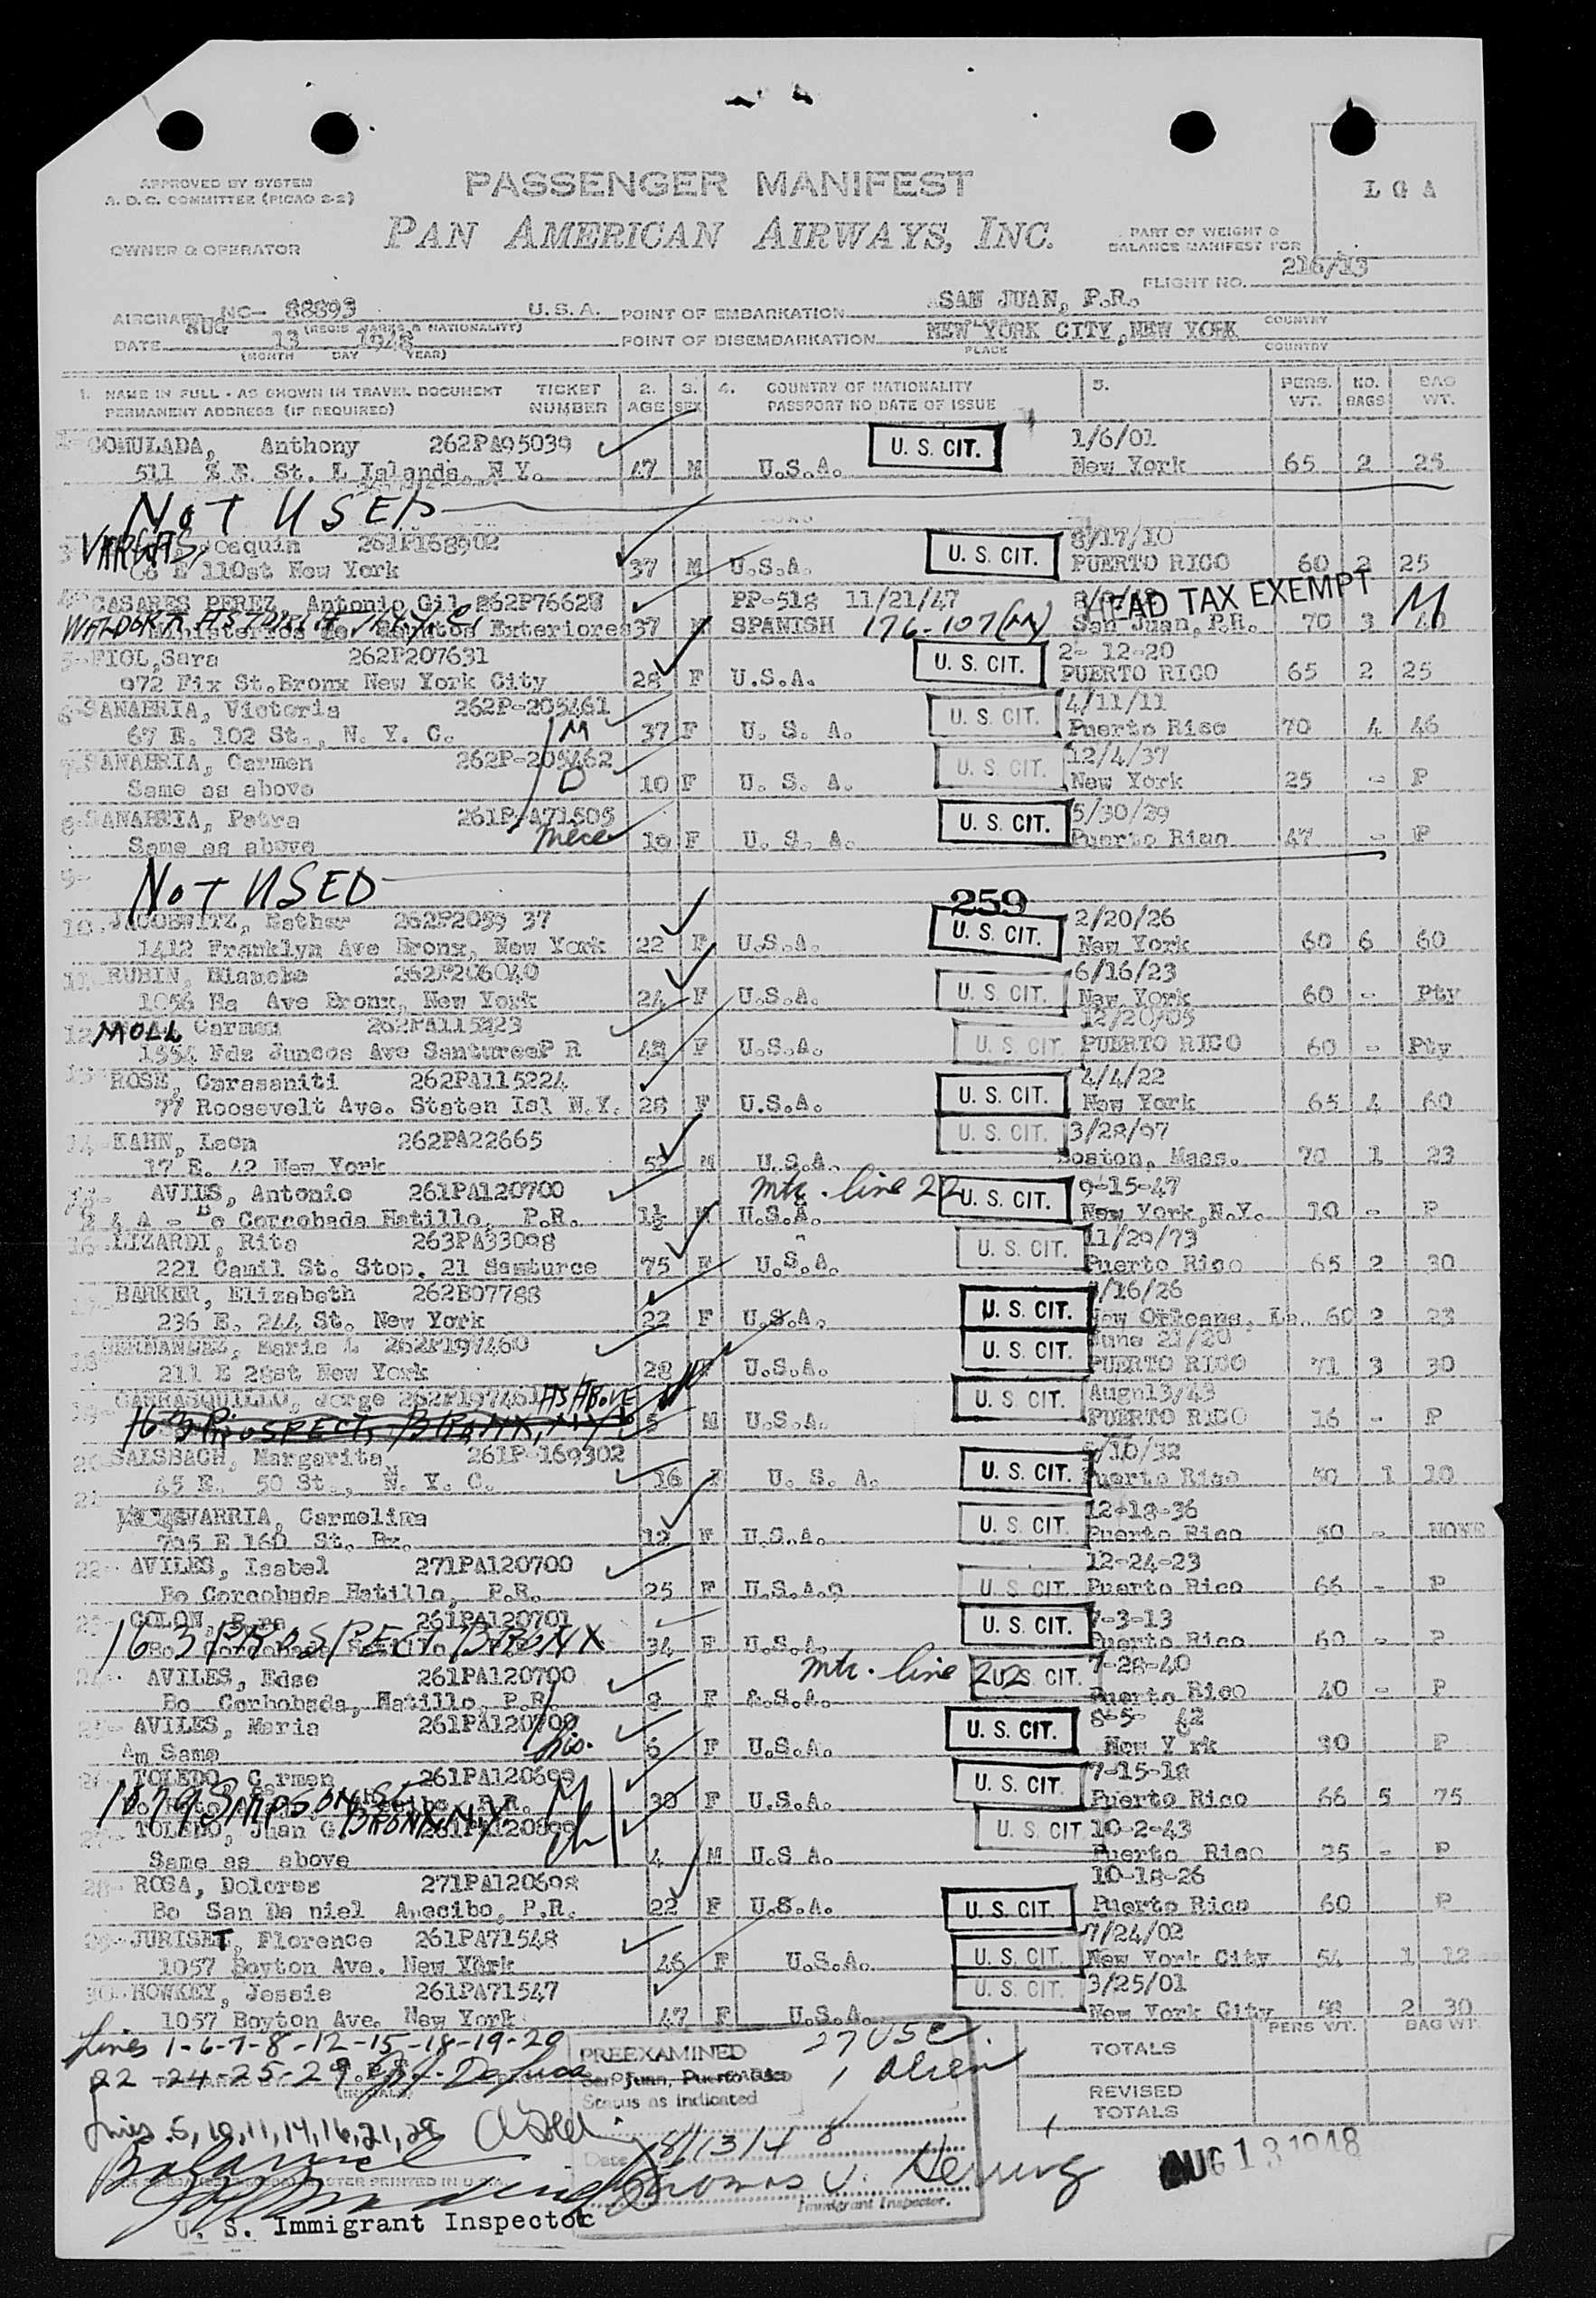 APPROVED BY SYSTEM
A. D. C. COMMITTEE (PICAO 2-2)
PASSENGER MANIFEST
L G A
OWNER & OPERATOR
PAN AMERICAN AIRWAYS, INC.
PART OF WEIGHT &
BALANCE MANIFEST FOR
FLIGHT NO. 216/13
AIRCRAFT NC- 88893 U.S.A. POINT OF EMBARKATION SAN JUAN, P.R.
(REGIS MARKS & NATIONALITY) COUNTRY
DATE AUG 13 1948 POINT OF DISEMBARKATION NEW YORK CITY, NEW YORK
(MONTH DAY YEAR) PLACE COUNTRY
1. NAME IN FULL - AS SHOWN IN TRAVEL DOCUMENT TICKET 2. 3. 4. COUNTRY OF NATIONALITY 5. PERS. NO. BAG
PERMANENT ADDRESS (IF REQUIRED) NUMBER AGE SEX PASSPORT NO DATE OF ISSUE WT. BAGS WT.
1- COMULADA, Anthony 262PA95039 U. S. CIT. 1/6/01
511 E. St. L Islands, N Y. 47 M U.S.A. New York 65 2 25
NOT USED
3 VARGAS, Joaquin 261P168902 U. S. CIT. 8/17/10
66 E 110st New York 37 M U.S.A. PUERTO RICO 60 2 25
4- CASARES PEREZ, Antonio Gil 262P76628 PP-518 11/21/47 HEAD TAX EXEMPT M
WALDORF ASTORIA, N.Y.C. Exteriores 37 M SPANISH 176-107 San Juan, P.R. 70 3 40
5- FIOL, Sara 262P207631 U. S. CIT. 2- 12-20
972 Fix St. Bronx New York City 28 F U.S.A. PUERTO RICO 65 2 25
6- SANABRIA, Victoria 262P-205461 U. S. CIT. 4/11/11
67 E. 102 St., N. Y. C. M 37 F U. S. A. Puerto Rico 70 4 46
7- SANABRIA, Carmen 262P-205462 U. S. CIT. 12/4/37
Same as above D 10 F U. S. A. New York 25 - P
8- SANABRIA, Petra 261P-A71505 U. S. CIT. 5/30/29
Same as above niece 19 F U. S. A. Puerto Rico 47 - P
9- NOT USED
259
10. JACOBWITZ, Esther 262P2059 37 U. S. CIT. 2/20/26
1412 Franklyn Ave Bronx, New York 22 F U.S.A. New York 60 6 60
11. RUBIN, Blanche 262P206040 U. S. CIT. 6/16/23
1056 Ha Ave Bronx, New York 24 F U.S.A. New York 60 - Pty
12 MOLL Carmen 262PA115223 U. S. CIT. 12/20/05
1554 Fds Juncos Ave Santurce P R 42 F U.S.A. PUERTO RICO 60 - Pty
13- ROSE, Carasaniti 262PA115224 U. S. CIT. 4/4/22
77 Roosevelt Ave. Staten Isl N.Y. 28 F U.S.A. New York 65 4 60
14- KAHN, Leon 262PA22665 U. S. CIT. 3/28/97
17 E. 42 New York M U.S.A. Boston, Mass. 70 1 23
AVILS, Antonio 261PA120700 mtr. line 22 U. S. CIT. 9-15-47
Bo Corcobada Hatillo, P.R. 1½ M U.S.A. New York, N.Y. 10 - P
16- LIZARDI, Rita 263PA33098 U. S. CIT. 11/29/73
221 Camil St. Stop. 21 Santurce 75 F U.S.A. Puerto Rico 65 2 30
BARKER, Elizabeth 262B07788 U. S. CIT. /16/26
236 E. 244 St. New York 22 F U.S.A. New Orleans, La. 60 2 23
18 HERNANDEZ, Maria L 262P197460 U. S. CIT. June 21/20
211 E 28st New York 28 F U.S.A. PUERTO RICO 71 3 30
19 CARRASQUILLO, Jorge 262P197461 AS ABOVE U. S. CIT. Augn13/43
163 PROSPECT, BRONX, N.Y. 5 M U.S.A. PUERTO RICO 16 - P
20 SALSBACH, Margarita, 261P-169302 U. S. CIT. /10/32
45 E. 50 St., N. Y. C. 16 F U. S. A. Puerto Rico 50 1 10
21 Carmelina U. S. CIT. 12-18-36
795 E 160 St. Bx. 12 F U.S.A. Puerto Rico 50 - NONE
22- AVILES, Isabel 271PA120700 U. S. CIT. 12-24-23
Bo Corcobada Hatillo, P.R. 25 F U.S.A. Puerto Rico 66 - P
23- COLON, 261PA120701 U. S. CIT. 7-3-13
163 PROSPECT BRONX 34 F U.S.A. Puerto Rico 60 - P
24- AVILES, Edse 261PA120700 mtr. line 22 U. S. CIT. 7-28-40
Bo Corhobada, Hatillo, P.R. 8 F U.S.A. Puerto Rico 40 - P
25- AVILES, Maria 261PA120700 U. S. CIT. 8-5- 42
Am Same 6 F U.S.A. New York 30 P
TOLEDO, Carmen 261PA120699 U. S. CIT. 7-15-18
1079 SIMPSON ST. BRONX N.Y. M 30 F U.S.A. Puerto Rico 66 5 75
TOLEDO, Juan G. 261PA120899 U. S. CIT 10-2-43
Same as above ch 4 M U.S.A. Puerto Rico 35 - P
28- ROSA, Dolores 271PA120698 U. S. CIT. 10-18-26
Bo San Da niel Arecibo, P.R. 22 F U.S.A. Puerto Rico 60 P
29- JURIST, Florence 261PA71548 U. S. CIT. 7/24/02
1057 Boyton Ave. New York 46 F U.S.A. New York City 54 1 12
30. HOWKEY, Jessie 261PA71547 U. S. CIT. 3/25/01
1057 Boyton Ave. New York 47 F U.S.A. New York City 58 2 30
Lines 1-6-7-8-12-15-18-19-20
22-24-25-29
Lines 5, 10, 11, 14, 16, 21, 28
PREEXAMINED
San Juan, Puerto Rico
Status as indicated
Date 8/13/48
Thomas J.
Immigrant Inspector.
27 USC.
1 Alien
PERS WT. BAG WT.
TOTALS
REVISED
TOTALS
AUG 13 1948
U. S. Immigrant Inspector